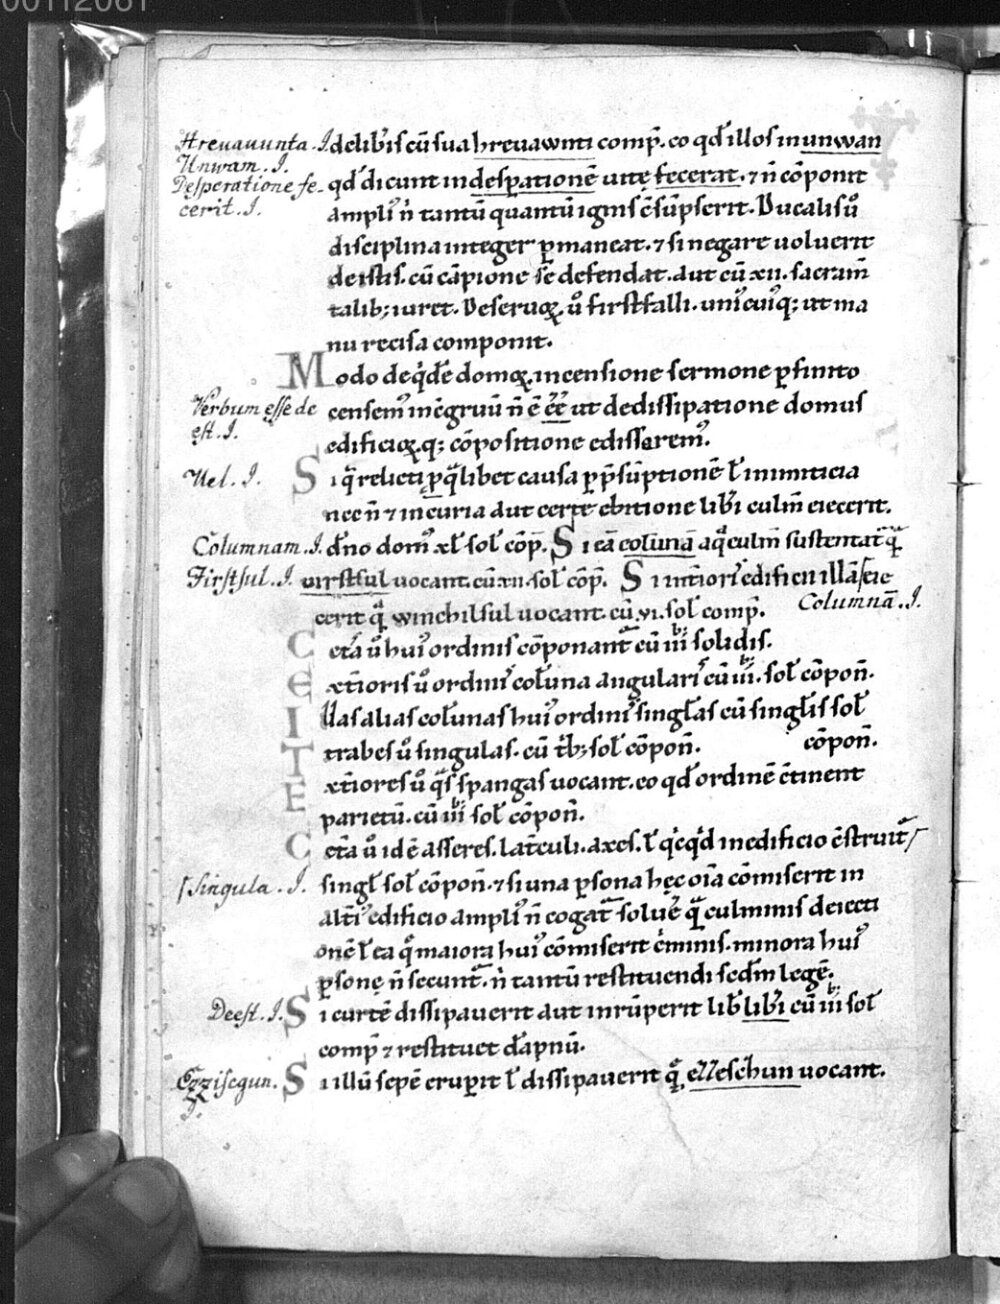 00112081
Hrevavunta. I. de libis cū sua hrevawnti comp̄. eo qd̄ illos in unwan
Unwam. I.
Desperatione fe- qd̄ dicunt in desp̱ationē uitę fecerat. ⁊ n̄ cōponit
cerit. I.
ampli᷒ n̄ tantū quantū ignis c̄sūpserit. Ducalis ů
disciplina integer ꝑmaneat. ⁊ si negare uoluerit
de istis. cū cāpione se defendat. aut cū xii. sacram̄
talib; iuret. De seruoꝝ ů firstfalli. uni᷒cui᷒q; ut ma
nu recisa componit.
Modo de q̇dē domoꝝ incensione sermone ꝑfinito
Verbum esse de censem᷒ inc̄gruū n̄ ē ēē ut de dissipatione domus
est. I.
edificioꝝ q; cōpositione edisserem᷒.
Vel. I. Si q̇ relicti ꝑ qͣlibet causa ꝑ p̄sūptionē ł inimiticia
nec n̄ ⁊ incuria aut certe ebitione lib̄i culm̄ eiecerit.
Columnam. I. dn̄o dom᷒ xl̄ sol̄ cōp̄. Si eā colunā a qͣ culm̄ sustentatͬ qͣ̄
Firstsul. I. uirstsul uocant. cū xii. sol̄ cōp̄. Si int̄iori᷒ edificii illā eie
cerit qͣ̄ winchilsul uocant. cū .vi. sol̄ comp̄. Columnā. I.
Cetͣa ů hui᷒ ordinis cōponantͬ cū iii solidis.
Ext̄ioris ů ordini᷒ col̄una angulari᷒ cū iii. sol̄ cōpon̄.
Illas alias col̄unas hui᷒ ordini᷒ singl̄as cū singl̄is sol̄
cōpon̄.
Trabes ů singulas. cū tͥb; sol̄ cōpon̄.
Ext̄iores ů qͣs spangas uocant. eo qd̄ ordinē c̄tinent
parietū. cū iii sol̄ cōpon̄.
Cetͣa ů idē asseres. lat̄culi. axes. ł q̇cq̇d in edificio c̄struitͬ /
/ Singula. I. singl̄ sol̄ cōpon̄. ⁊ si una ꝑsona hęc oīa cōmiserit in
alt̄i᷒ edificio ampli᷒ n̄ cogatͬ soluē qͣ̄ culminis deiecti
onē ł ea qͣ̄ maiora hui᷒ cōmiserit c̄minis. minora hui᷒
ꝑsonę n̄ secuntͬ. n̄ tantū restituendi scdm̄ legē.
Deest. I. Si curtē dissipauerit aut inrūperit lib̄ lib̄i cū iii sol̄
comp̄ ⁊ restituet dāpnū.
Ezzisczun. I. Si illū sepē eruperit ł dissipauerit qͣ̄ ezzeschun uocant.